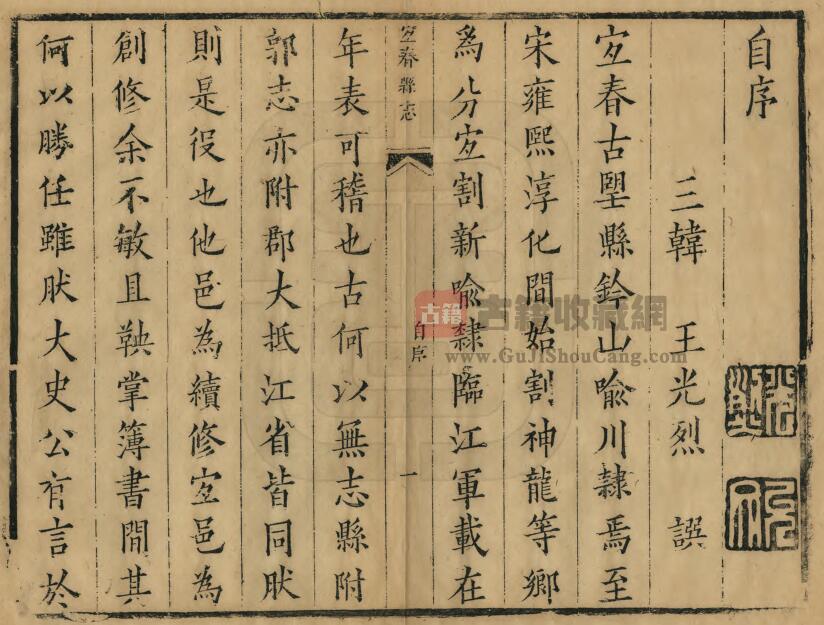 自序
三韓 王光烈 譔
宜春古塱縣鈐山喻川隷焉至
宋雍熙淳化間始割神龍等鄉
爲分宜割新喻隷臨江軍載在
宜春縣志
自序
一
年表可稽也古何以無志縣附
郭志亦附郡大抵江省皆同肰
則是役也他邑為續修宜邑為
創修余不敏且鞅掌簿書間其
何以勝任雖肰大史公有言於
古籍
古籍收藏網
www.GuJiShouCang.com